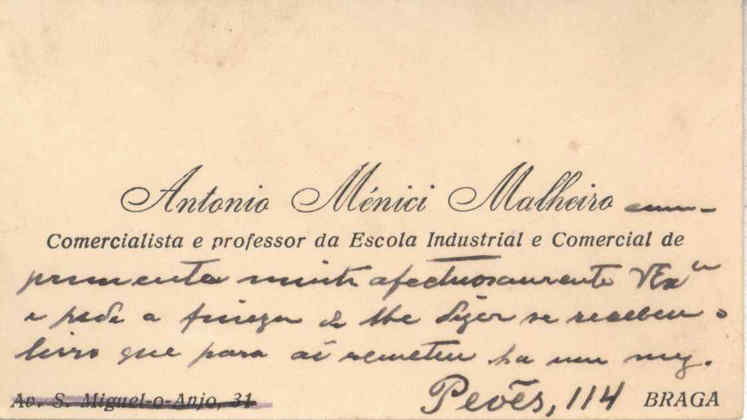 Antonio Ménici Malheiro cum-
Comercialista e professor da Escola Industrial e Comercial de
primenta muito afectuosamente VExª
e pede a fineza de lhe dizer se recebeu o
livro que para aí remeteu ha um mez.
Av. S. Miguel-o-Anjo, 31 Pevês, 114 BRAGA